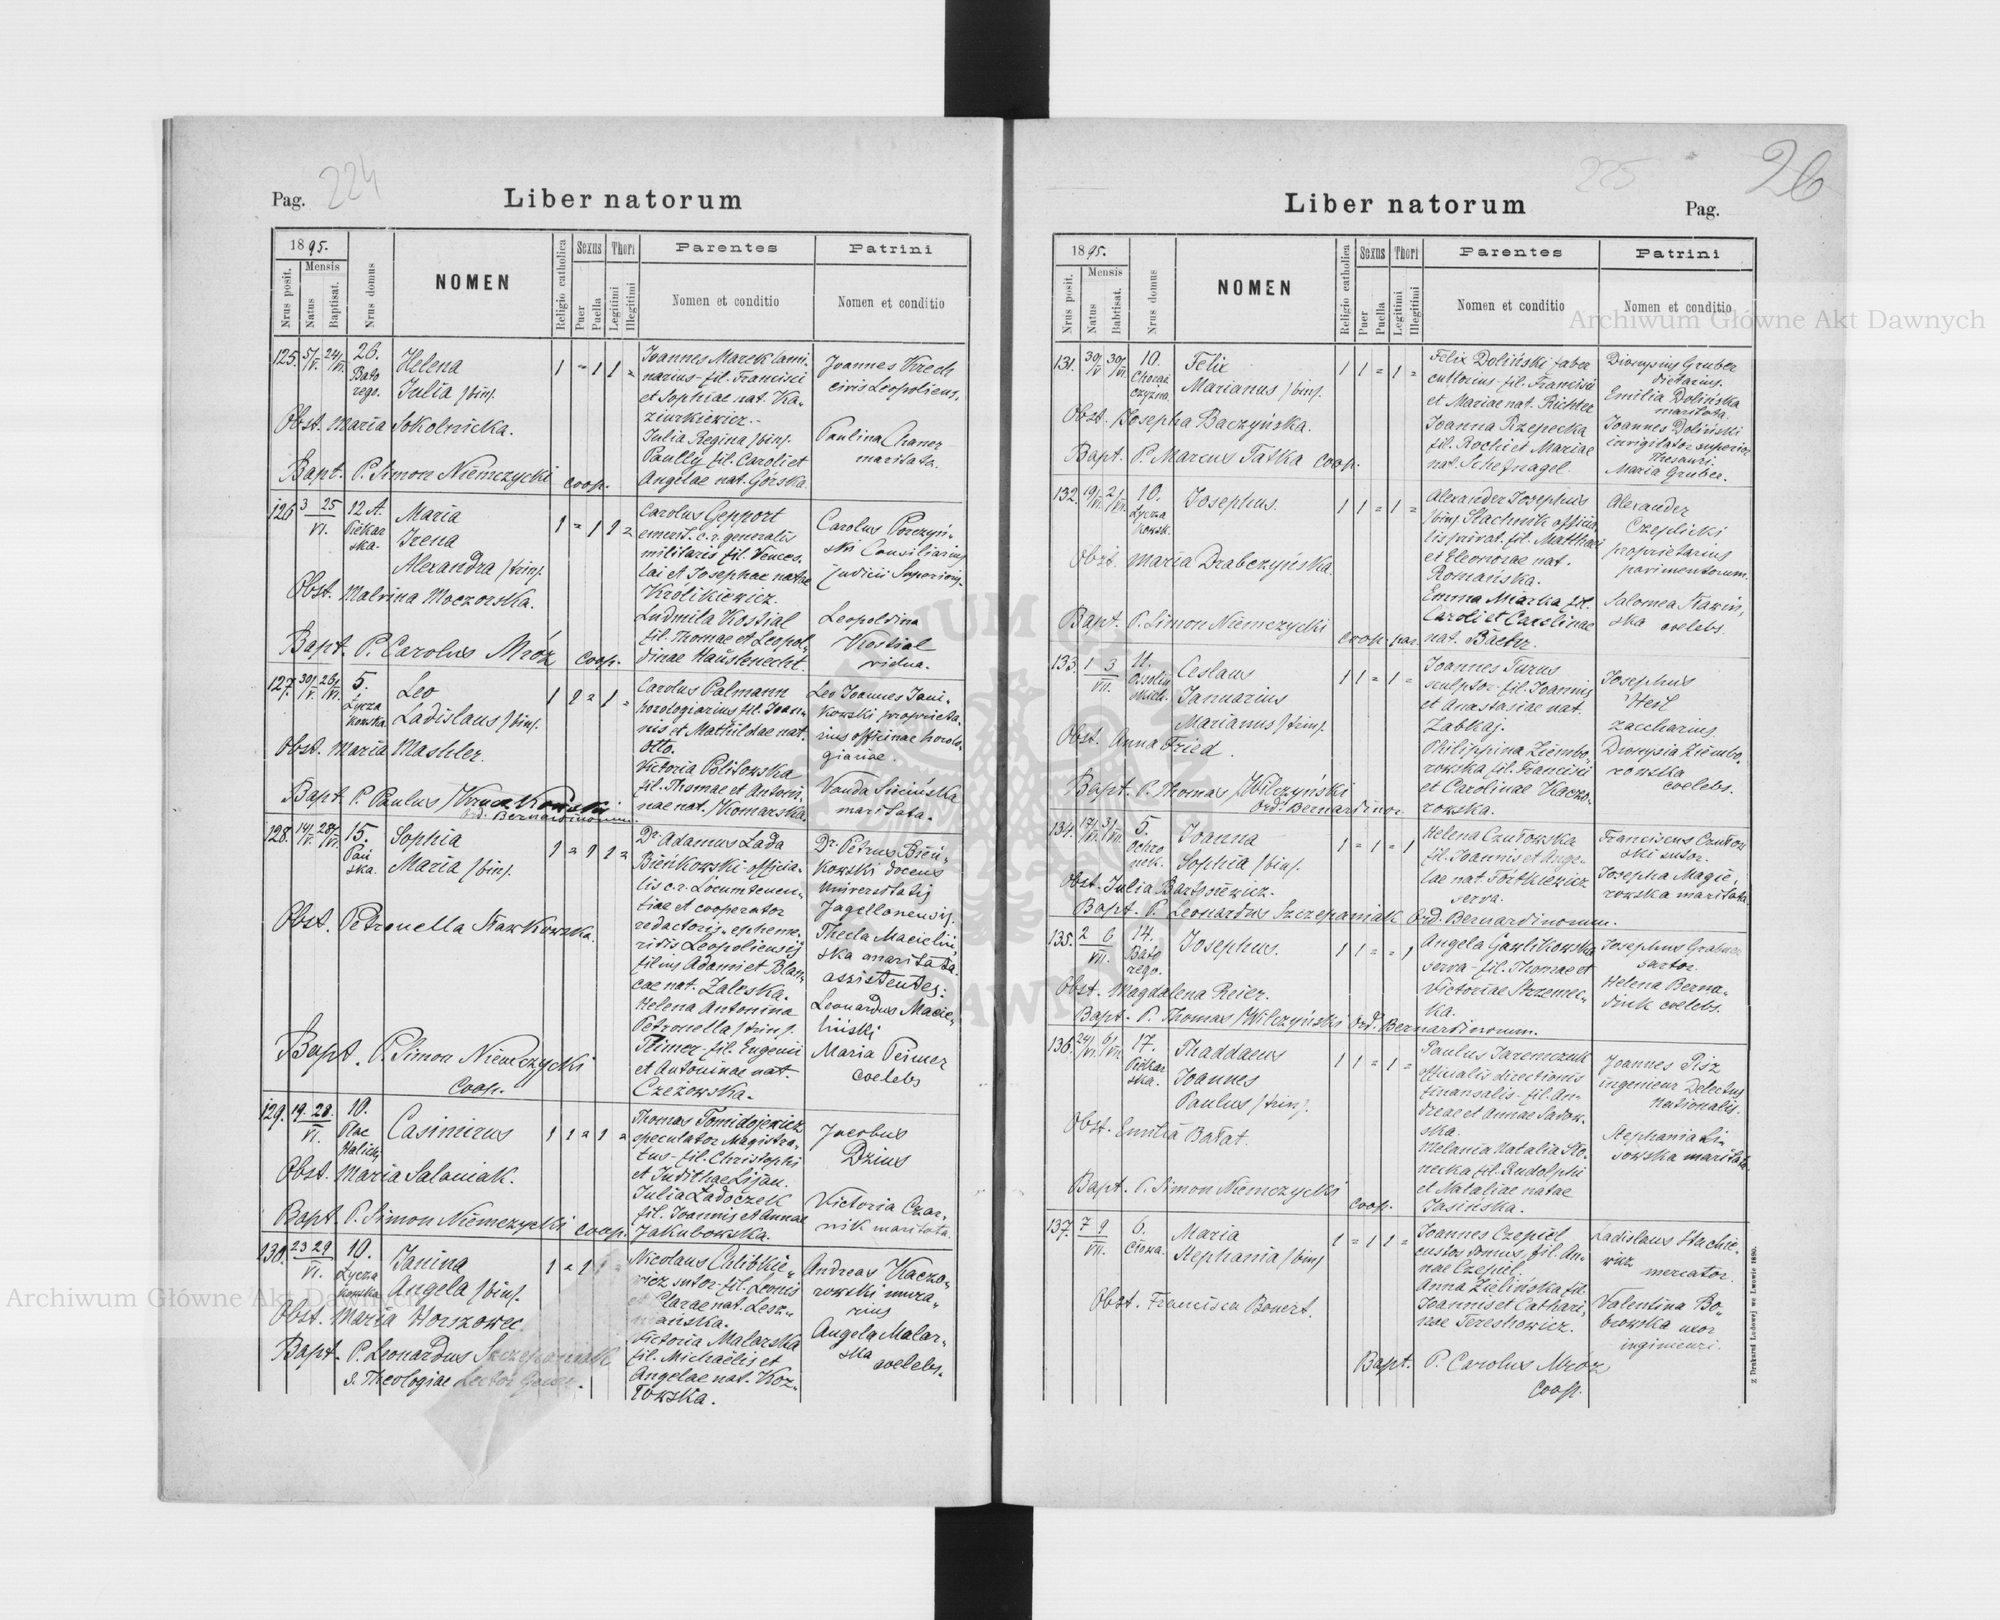 224
Pag.
Liber natorum
1895.
Nrus posit.
Mensis
Natus
Baptisat.
Nrus domus
NOMEN
Religio catholica
Sexus
Puer
Puella
Thori
Legitimi
Illegitimi
Parentes
Nomen et conditio
Patrini
Nomen et conditio
125. 5/V. 24/VI. 26.
Bato
rego.
Helena
Julia /bin/.
1 = 1 1 =
Obst. Maria Sokolnicka.
Bapt. P. Simon Niemczycki coop.
Joannes Marek lami-
narius - fil. Francisci
et Sophiae nat. Ka-
ziurkiewicz.-
Julia Regina /bin/.
Paully fil. Caroli et
Angelae nat. Górska.
Joannes Krech
civis Leopoliens.
Paulina Chaner
maritata.
126 3 25
VI.
12 A.
Piekar
ska.
Maria
Irena
Alexandra /trin/.
1 = 1 1 =
Obst. Malvina Moczorska.
Bapt. P. Carolus Mróz coop.
Carolus Gepport
emerit. c. r. generalis
militaris fil. Vences-
lai et Josephae natae
Królikiewicz.
Ludmila Kostial
fil. Thomae et Leopol-
dinae Hauslenecht.
Carolus Porzyń-
ski Consiliarius
judicii Superioris.
Leopoldina
Kostial
vidua.
127. 30/V. 26/VI. 5.
Łycza
kowska.
Leo
Ladislaus /bin/.
1 1 = 1 =
Obst. Maria Mashler.
Bapt. P. Paulus
Ord. Bernardinorum.
Carolus Palmann
horologiarius fil. Joan-
nis et Mathildae nat.
Otto.
Victoria Politowska
fil. Thomae et Antoni-
nae nat. Komarska.
Leo Joannes Jani-
kowski proprieta-
rius officinae horolo-
giariae.
Vanda Sicińska
maritata.
128. 14/VI. 28/VI. 15.
Pań
ska.
Sophia
Maria /bin/.
1 = 1 1 =
Obst. Petronella Stawkowska.
Bapt. P. Simon Niemczycki
Coop.
Dr. Adamus Lada
Bieńkowski - officia-
lis c. r. Locumtenen-
tiae et cooperator
redactoris epheme-
ridis Leopoliensis
filius Adami et Blan-
cae nat. Zaleska.
Helena Antonina
Petronella /trin/.
Teimer - fil. Eugenii
et Antoninae nat.
Czeżowska.
Dr. Petrus Bień-
kowski docens
Universitatis
Jagellonensis.
Thecla Macieliń-
ska maritata.
assistentes:
Leonardus Macie-
liński
Maria Teimer
coelebs
129. 19. 28.
VI.
10.
Plac
Halicki
Casimirus
1 1 = 1 =
Obst. Maria Salaniak.
Bapt. P. Simon Niemczycki coop.
Thomas Tomidojewicz
speculator Magistra-
tus - fil. Christophi
et Judithae Lijau.
Julia Ładoczek
fil. Joannis et Annae
Jakubowska.
Jacobus
Dzius
Victoria Czar-
nik maritata.
130. 23 29
VI.
10.
Łycza
kowska
Janina
Angela /bin/.
1 = 1 1 =
Obst. Maria Horszowec
Bapt. P. Leonardus Szczepaniak
S. Theologiae Lector
Nicolaus Chlibkie-
wicz sutor - fil. Leonis
et Clarae nat. Lesz-
niańska.
Victoria Malarska
fil. Michaëlis et
Angelae nat. Koz-
łowska.
Andreas Kaczo-
rowski mura-
rius
Angela Malar-
ska
coelebs.
225
26
Liber natorum
Pag.
1895.
Nrus posit.
Mensis
Natus
Babtisat.
Nrus domus
NOMEN
Religio catholica
Sexus
Puer
Puella
Thori
Legitimi
Illegitimi
Parentes
Nomen et conditio
Patrini
Nomen et conditio
131. 30/V 30/VI. 10.
Chorąż
czyzna.
Felix
Marianus /bin/.
1 1 = 1 =
Obst. Josepha Baczyńska.
Bapt. P. Marcus Tatka coop.
Felix Doliński faber
cultorius - fil. Francisci
et Mariae nat. Richter
Joanna Rzepecka
fil. Rochi et Mariae
nat. Schefnagel.
Dionysius Gruber
dietarius.
Emilia Dolińska
maritata.
Joannes Doliński
invigilator superior
Thesauri.
Maria Gruber.
132. 19/VI. 2/VII. 10.
Łycza
kowsk.
Josephus.
1 1 = 1 =
Obst. Maria Drabczyńska.
Bapt. P. Simon Niemczycki
coop. par.
Alexander Josephus
/bin/ Stachnik officia-
lis privat. fil. Matthaei
et Eleonorae nat.
Romańska.
Emma Miarka fil.
Caroli et Carolinae
nat. Bäcker.
Alexander
Czeplicki
proprietarius
pavimentorum.
Salomea Stawiń-
ska coelebs.
133. 1 3
VII.
11.
Ossoliń
skich.
Ceslaus
Januarius
Marianus /trin/.
1 1 = 1 =
Obst. Anna Fried.
Bapt. P. Thomas Wilczyński
Ord. Bernardinor.
Joannes Turus
sculptor - fil. Joannis
et Anastasiae nat.
Zabkaj.
Philippina Ziembo-
rowska fil. Francisci
et Carolinae Kaczo-
rowska.
Josephus
Heil
zaccharius.
Dionysia Ziembo-
rowska
coelebs.
134. 17/VI. 3/VII. 5.
Ochro
nek.
Joanna
Sophia /bin/.
1 = 1 = 1
Obst. Julia Bartosiewicz.
Bapt. P. Leonardus Szczepaniak Ord. Bernardinorum.
Helena Czułowska
fil. Joannis et Ange-
lae nat. Fortkiewicz
serva.
Franciscus Czułow
ski sutor.
Josepha Magie-
rowska maritata
135. 2 6
VII.
14.
Bato
rego.
Josephus.
1 1 = = 1
Obst. Magdalena Reier.
Bapt. P. Thomas Wilczyński Ord. Bernardinorum.
Angela Gawlikowska
serva - fil. Thomae et
Victoriae Strzemec-
ka.
Josephus Grabner
sartor.
Helena Berna-
dink coelebs.
136. 24/VI. 6/VII. 17.
Piekar
ska.
Thaddaeus
Joannes
Paulus /trin/.
1 1 = 1 =
Obst. Emilia Bałat.
Bapt. P. Simon Niemczycki
coop.
Paulus Jaremczuk
officialis directionis
finansalis - fil. An-
dreae et Annae Sadow-
ska.
Melania Natalia Sko-
necka fil. Rudolphi
et Nataliae natae
Jasińska.
Joannes Pisz
ingenieur Delectus
Nationalis.
Stephania Li-
sowska maritata.
137. 7 9
VII.
6.
Cłowa.
Maria
Stephania /bin/
1 = 1 1 =
Obst. Francisca Bonert.
Bapt. P. Carolus Mróz
coop.
Joannes Czepiel
custos domus, fil. An-
nae Czepiel.
Anna Zielińska fil.
Joannis et Cathari-
nae Tereshowicz.
Ladislaus Stachie-
wicz
mercator.
Valentina Bo-
browska uxor
ingimeuri.
Z Drukarni Ludowej we Lwowie 1890.
Archiwum Główne Akt Dawnych
Archiwum Główne Akt Dawnych